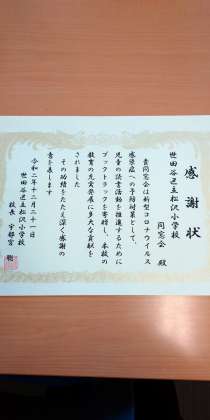 感謝状
世田谷区立松沢小学校
同窓会 殿
貴同窓会は新型コロナウイルス
感染症への予防対策として、
児童の読書活動を推進するために
ブックトラックを寄贈し、本校の
教育の充実発展に多大な貢献を
されました
その功績をたたえ深く感謝の
意を表します
令和二年十二月二十一日
世田谷区立松沢小学校
校長 宇都宮 聡